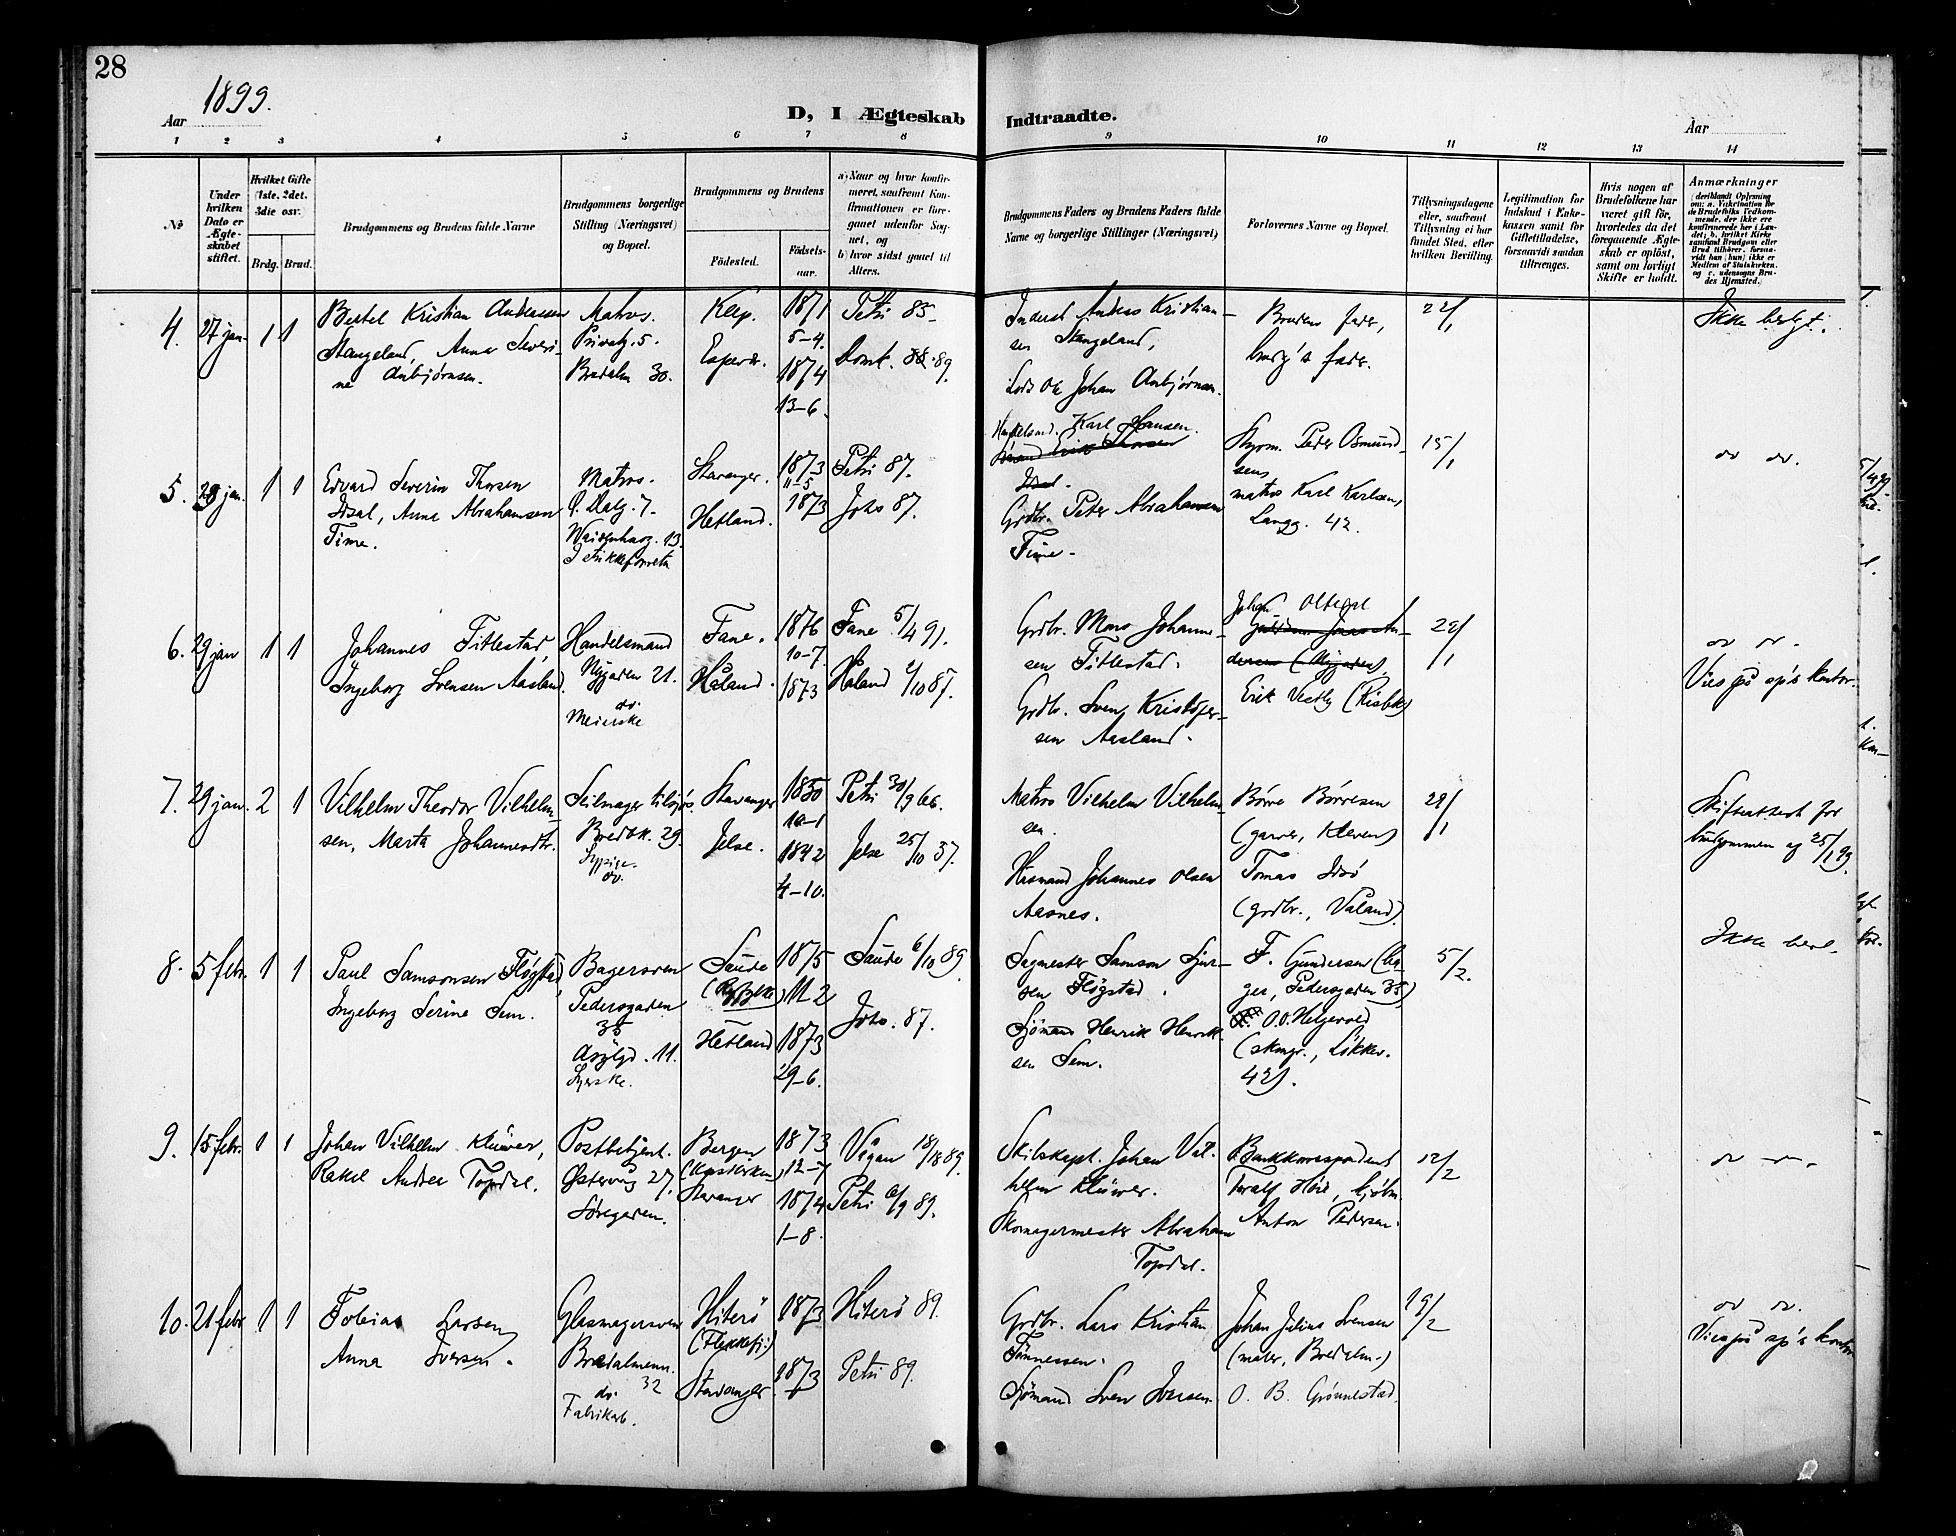 28
Aar 1899.
D, I Ægteskab Indtraadte.
Aar
1 2 3 4 5 6 7 8 9 10 11 12 13 14
No
Under hvilken Dato er Ægteskabet stiftet.
Hvilket Gifte (1ste, 2det, 3die osv.
Brdg. Brud.
Brudgommens og Brudens fulde Navne
Brudgommens borgerlige Stilling (Næringsvei) og Bopæl.
Brudgommens og Brudens
Fødested.
Fødselsaar.
a) Naar og hvor konfirmeret, saafremt Konfirmationen er foregaaet udenfor Sognet, og
b) hvor sidst gaaet til Alters.
Brudgommens Faders og Brudens Faders fulde Navne og borgerlige Stillinger (Næringsvei)
Forlovernes Navne og Bopæl.
Tillysningsdagene eller, saafremt Tillysning ei har fundet Sted, efter hvilken Bevilling.
Legitimation for Indskud i Enkekassen samt for Giftetilladelse, forsaavidt saadan tiltrænges.
Hvis nogen af Brudefolkene har været gift før, hvorledes da det foregaaende Ægteskab er opløst, samt om lovligt Skifte er holdt.
Anmærkninger
4. 27 jan. 1 1
Bertel Kristian Andreassen
Stangeland, Anna Severi-
ne Anbjørnsen.
Matros.
Privatg. 5.
Bredalm 30.
Klep.
1871
5-4.
1874
13-6.
Petri 85
Domk. 89.
Anders Kristian-
sen Stangeland,
Lods Johan Anbjørnsen.
Brudens fader,
brudg's fader.
22/1
Ikke beslegt.
5. 28 jan. 1 1
Edvard Severin Thorsen
Idsal, Anna Abrahamsen
Time.
Matros.
Stavanger.
Hetland.
1873
11-5
1873
Petri 87.
Johs 87.
Handelsmd. Karl Hansen.
Grdbr. Peter Abrahamsen
Time.
Styrm. Peder Osmund-
sen,
matros Karl Karlsen,
Langg. 42.
15/1
do do.
6. 29 jan 1 1
Johannes Titlestad,
Ingeborg Svensen Aasland.
Handelsmand
Nygaden 21.
do.
Meierske
Fane.
Håland.
1876
10-7.
1873
Fane 5/4 91.
Håland 1/10 87.
Grdbr. Mons Johanne-
sen Titlestad.
Grdbr. Sven Kristofer-
sen Aasland.
Erik Vestly (Kisbk)
22/1
do do.
Vies på sp's kontor.
7. 29 jan. 2 1
Vilhelm Theodor Vilhelm-
sen, Marta Johannesdtr.
Seilmager tilsjøs.
Bredbk. 29.
Sypige.
do.
Stavanger
Jelse.
1850
10-1
1842
4-10.
Petri 30/9 66.
Jelse 25/10 57.
Matros Vilhelm Vilhelm-
sen.
Husmand Johannes Olsen
Aasnes.
Børre Børresen
(garver, Kleven)
Tomas Idsö
(grdbr., Våland).
29/1
Skifteattest for
brudgommen af 25/1 99.
8. 5 febr. 1 1
Paul Samsonsen Fløgstad,
Ingeborg Serine Sem.
Bagersven
Pedersgaden
35
Asylgd. 11.
Syerske.
Saude
(Ryfylke)
Hetland
1875
11-2
1873
29-6.
Saude 6/10 89.
Johs. 87.
Sagmester Samson Sjur-
sen Fløgstad.
Sjömand Henrik Henrik-
sen Sem.
F. Gundersen (ba-
ger, Pedersgaden 35)
O.O. Helgevold
(skmgr., Løkkev.
42).
5/2.
Ikke besl.
9. 15 febr. 1 1
Johan Vilhelm Klüwer,
Rakel Andrea Topdal.
Postbetjent.
Østervåg 27.
Søregaden.
Bergen
(Korskirken)
Stavanger
1873
12-7
1874
1-8.
Vågan 18/8 89.
Petri 6/9 89.
Skibskapt. Johan Vil-
helm Klüwer.
Skomagermester Abraham
Topdal.
Bankkorrespondent
Toralf Høie, kjøbm.
Anton Pedersen.
12/2
do do.
10. 21 febr 1 1
Tobias Larsen,
Anna Iversen.
Glasmagersven
Bredalmenn.
32
do.
Fabrikarb.
Hiterö
(Flekkefj.)
Stavanger.
1873
1873
Hiterö 89.
Petri 89.
Grdbr. Lars Kristian
Tønnessen.
Sjömand Sven Iversen.
Johan Julius Svensen
(maler, Bredalm.)
O. B. Grønnestad.
19/2
do do.
Vies på sp's kontor